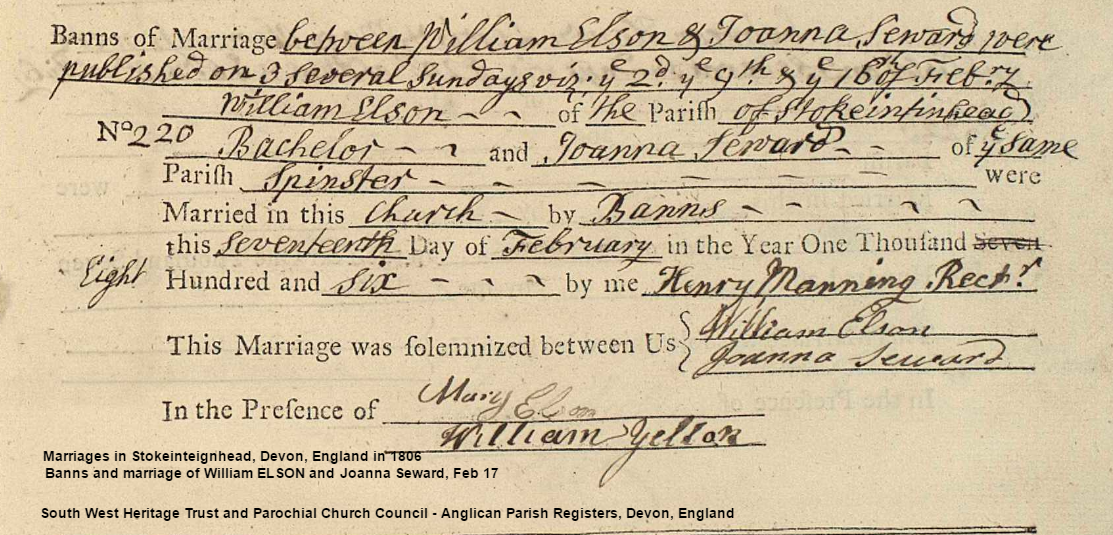 Banns of Marriage between William Elson & Joanna Seward were
published on 3 several Sundays viz: ye 2d. ye 9th & ye 16th of Feb:ry
William Elson - - of the Pariſh of Stokeintinhead
No 220 Bachelor - - and Joanna Seward - - of ye Same
Pariſh Spinster - - - - - - - were
Married in this Church - by Banns - - - -
this Seventeenth Day of February in the Year One Thouſand Seven
Eight Hundred and Six - - - - by me Henry Manning Rectr.
This Marriage was ſolemnized between Us { William Elson
Joanna Seward
In the Preſence of Mary Elson
William Yelson
Marriages in Stokeinteignhead, Devon, England in 1806
Banns and marriage of William ELSON and Joanna Seward, Feb 17
South West Heritage Trust and Parochial Church Council - Anglican Parish Registers, Devon, England